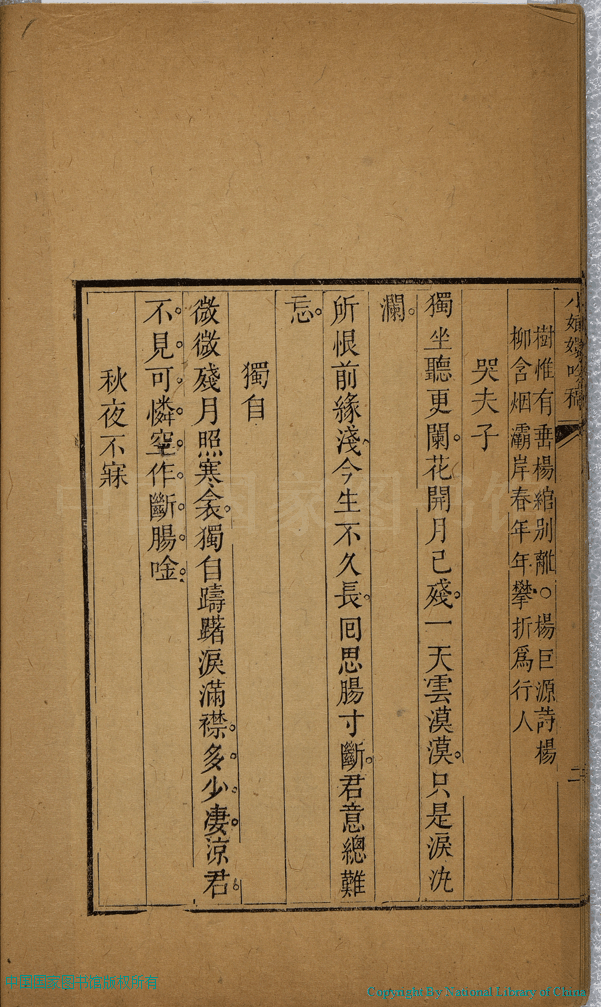 小嫏嬛吟稿
二
樹惟有垂楊綰别離○楊巨源詩楊
柳含烟灞岸春年年攀折爲行人
哭夫子
獨坐聽更闌。花開月已殘。一天雲漠漠。只是淚汍
瀾。
所恨前緣淺今生不久長。回思腸寸斷。君意總難
忘。
獨自
微微殘月照寒衾。獨自躊躇淚滿襟。多少凄涼君
不見可憐空作斷腸唫
秋夜不寐
中国国家图书馆
中国国家图书馆版权所有
Copyright By National Library of China